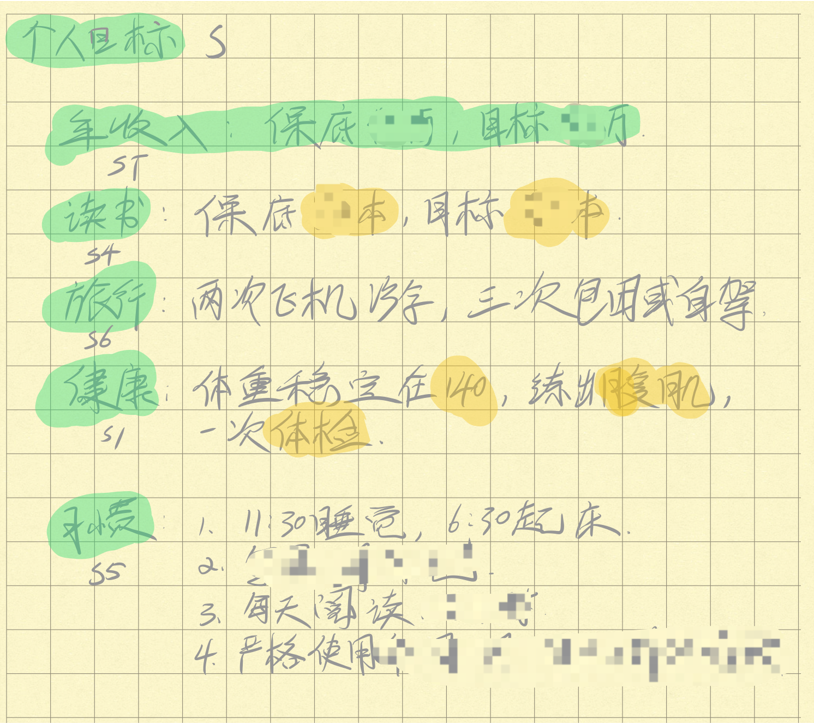 个人目标 S
年收入：保底 ，目标 万.
ST
读书：保底 本，目标 本.
S4
旅行：两次飞机游学，三次包团或自驾.
S6
健康：体重稳定在140，练出腹肌，
S1
一次体检.
习惯：1. 11:30睡觉，6:30起床.
S5
2.
3. 每天阅读
4. 严格使用